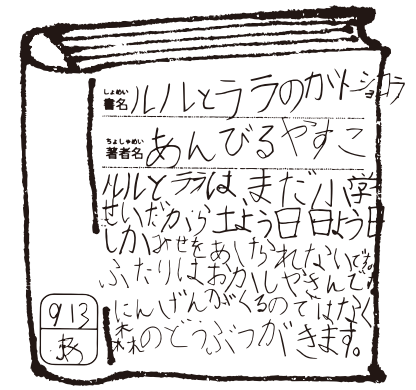 しょめい
書名 ルルとララのガトーショコラ
ちょしゃめい
著者名 あんびるやすこ
ルルとララは、まだ小学
せいだから土よう日日よう日
しかみせをあけられないです。
ふたりはおかしやさんです
にんげんがくるのではなく
森のどうぶつがきます。
9/13